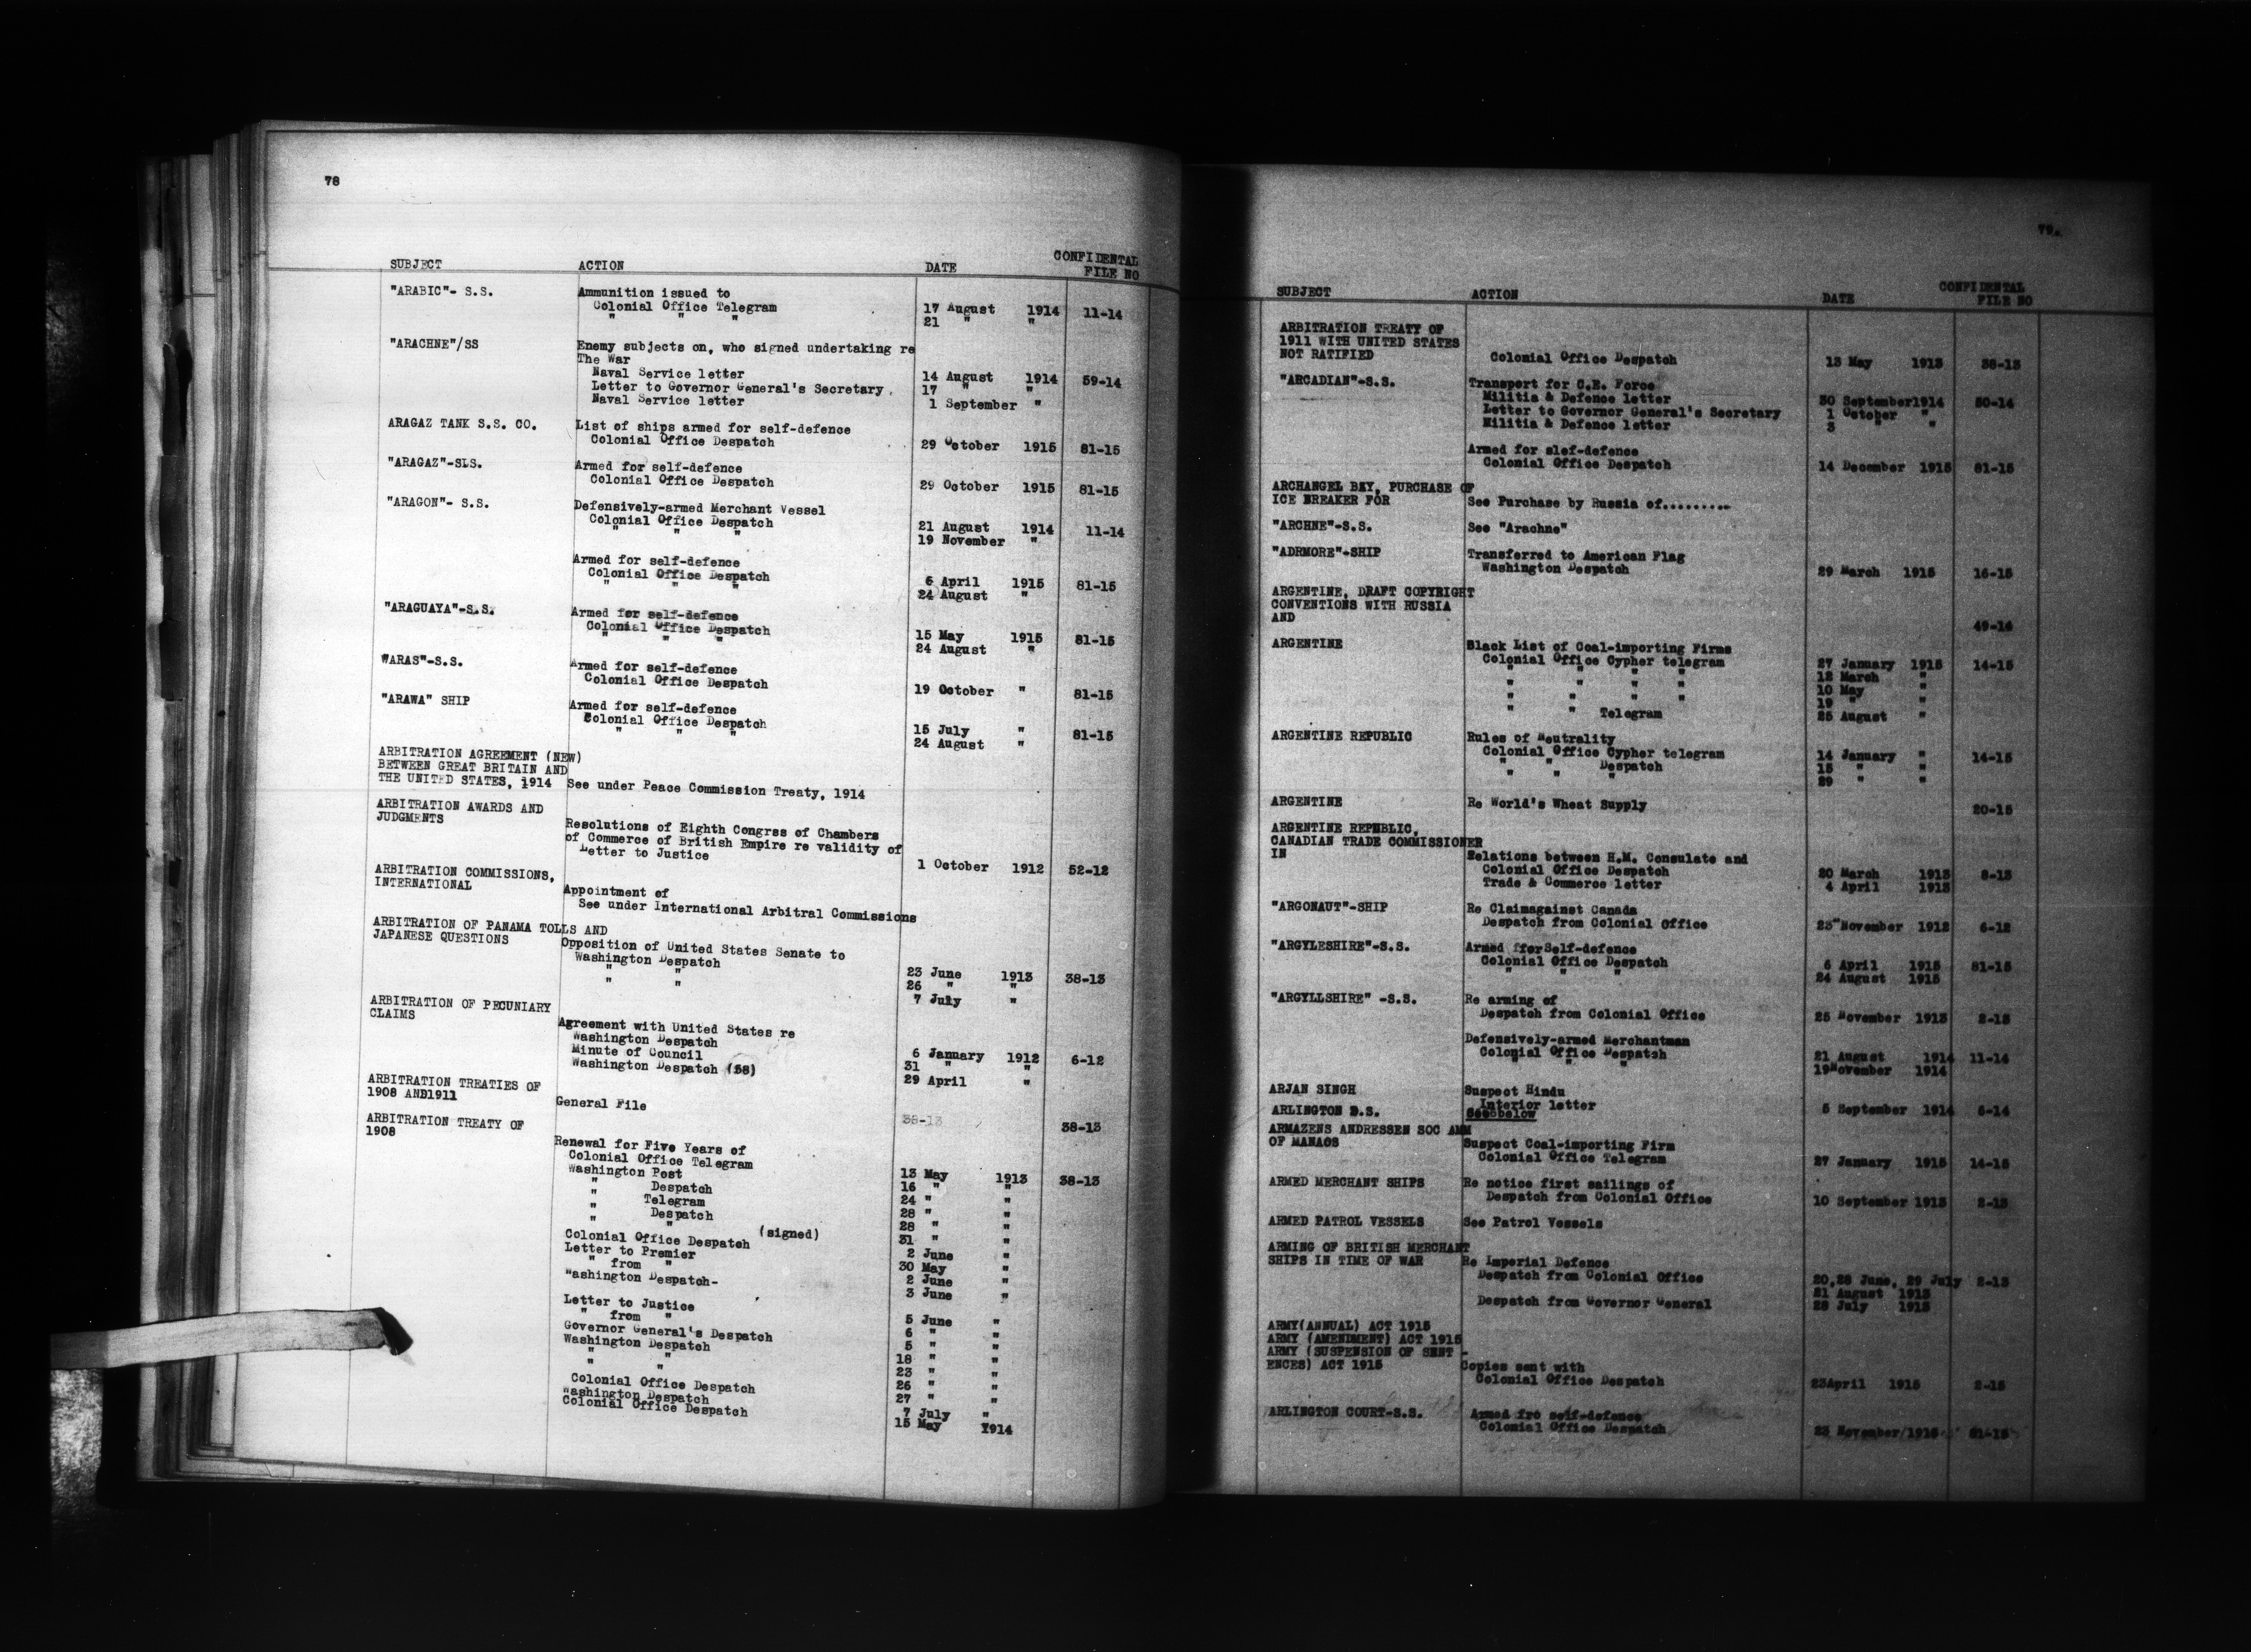 78
SUBJECT ACTION DATE CONFIDENTAL
FILE NO
"ARABIC"- S.S. Ammunition issued to
Colonial Office Telegram 17 August 1914 11-14
" " " 21 " "
"ARACHNE"/SS Enemy subjects on, who signed undertaking re
The War
Naval Service letter 14 August 1914 59-14
Letter to Governor General's Secretary. 17 " "
Naval Service letter 1 September "
ARAGAZ TANK S.S. CO. List of ships armed for self-defence
Colonial Office Despatch 29 October 1915 81-15
"ARAGAZ"-SLS. Armed for self-defence
Colonial Office Despatch 29 October 1915 81-15
"ARAGON"- S.S. Defensively-armed Merchant Vessel
Colonial Office Despatch 21 August 1914 11-14
" " " 19 November "
Armed for self-defence
Colonial Office Despatch 6 April 1915 81-15
" " " 24 August "
"ARAGUAYA"-S.S. Armed for self-defence
Colonial Office Despatch 15 May 1915 81-15
" " " 24 August "
WARAS"-S.S. Armed for self-defence
Colonial Office Despatch 19 October " 81-15
"ARAWA" SHIP Armed for self-defence
Colonial Office Despatch 15 July " 81-15
" " " 24 August "
ARBITRATION AGREEMENT (NEW)
BETWEEN GREAT BRITAIN AND
THE UNITED STATES, 1914 See under Peace Commission Treaty, 1914
ARBITRATION AWARDS AND
JUDGMENTS Resolutions of Eighth Congrss of Chambers
of Commerce of British Empire re validity of
Letter to Justice 1 October 1912 52-12
ARBITRATION COMMISSIONS,
INTERNATIONAL Appointment of
See under International Arbitral Commissions
ARBITRATION OF PANAMA TOLLS AND
JAPANESE QUESTIONS Opposition of United States Senate to
Washington Despatch 23 June 1913 38-13
" " 26 " "
" " 7 July "
ARBITRATION OF PECUNIARY
CLAIMS Agreement with United States re
Washington Despatch 6 January 1912 6-12
Minute of Council 31 " "
Washington Despatch (58) 29 April "
ARBITRATION TREATIES OF
1908 AND1911 General File 38-13 38-13
ARBITRATION TREATY OF
1908 Renewal for Five Years of
Colonial Office Telegram 13 May 1913 38-13
Washington Post 16 " "
" Despatch 24 " "
" Telegram 28 " "
" Despatch 28 " "
" " (signed) 31 " "
Colonial Office Despatch 2 June "
Letter to Premier 30 May "
" from " 2 June "
"ashington Despatch- 3 June "
Letter to Justice 5 June "
" from " 6 " "
Governor General's Despatch 5 " "
Washington Despatch 18 " "
" " 23 " "
" " 26 " "
Colonial Office Despatch 27 " "
Washington Despatch 7 July "
Colonial Office Despatch 15 May 1914
79.
SUBJECT ACTION DATE CONFIDENTAL
FILE NO
ARBITRATION TREATY OF
1911 WITH UNITED STATES
NOT RATIFIED Colonial Office Despatch 13 May 1913 38-13
"ARCADIAN"-S.S. Transport for C.E. Force
Militia & Defence letter 30 September1914 50-14
Letter to Governor General's Secretary 1 October "
Militia & Defence letter 3 " "
Armed for slef-defence
Colonial Office Despatch 14 December 1915 81-15
ARCHANGEL BAY, PURCHASE OF
ICE BREAKER FOR See Purchase by Russia of.........
"ARCHNE"-S.S. See "Arachne"
"ADRMORE"-SHIP Transferred to American Flag
Washington Despatch 29 March 1915 16-15
ARGENTINE, DRAFT COPYRIGHT
CONVENTIONS WITH RUSSIA
AND 49-14
ARGENTINE Black List of Coal-importing Firms
Colonial Office Cypher telegram 27 January 1915 14-15
" " " " 12 March "
" " " " 10 May "
" " " " 19 " "
" " Telegram 25 August "
ARGENTINE REPUBLIC Rules of Neutrality
Colonial Office Cypher telegram 14 January " 14-15
" " Despatch 15 " "
" " " 29 " "
ARGENTINE Re World's Wheat Supply 20-15
ARGENTINE REPUBLIC,
CANADIAN TRADE COMMISSIONER
IN Relations between H.M. Consulate and
Colonial Office Despatch 20 March 1913 8-13
Trade & Commerce letter 4 April 1913
"ARGONAUT"-SHIP Re Claimagainst Canada
Despatch from Colonial Office 23 November 1912 6-12
"ARGYLESHIRE"-S.S. Armed fforSelf-defence
Colonial Office Despatch 6 April 1915 81-15
" " " 24 August 1915
"ARGYLLSHIRE" -S.S. Re arming of
Despatch from Colonial Office 25 November 1913 2-13
Defensively-armed Merchantman
Colonial Office Despatch 21 August 1914 11-14
" " " 19November 1914
ARJAN SINGH Suspect Hindu
Interior letter 5 September 1914 5-14
ARLINGTON D.S. See below
ARMAZENS ANDRESSEN SOC AMM
OF MANAOS Suspect Coal-importing Firm
Colonial Office Telegram 27 January 1915 14-15
ARMED MERCHANT SHIPS Re notice first sailings of
Despatch from Colonial Office 10 September 1913 2-13
ARMED PATROL VESSELS See Patrol Vessels
ARMING OF BRITISH MERCHANT
SHIPS IN TIME OF WAR Re Imperial Defence
Despatch from Colonial Office 20,28 June, 29 July 2-13
21 August 1913
Despatch from Governor General 28 July 1913
ARMY(ANNUAL) ACT 1915
ARMY (AMENDMENT) ACT 1915
ARMY (SUSPENSION OF SENT -
ENCES) ACT 1915 Copies sent with
Colonial Office Despatch 23April 1915 2-15
ARLINGTON COURT-S.S. Armed fro self-defence
Colonial Office Despatch 23 November/1915 81-15